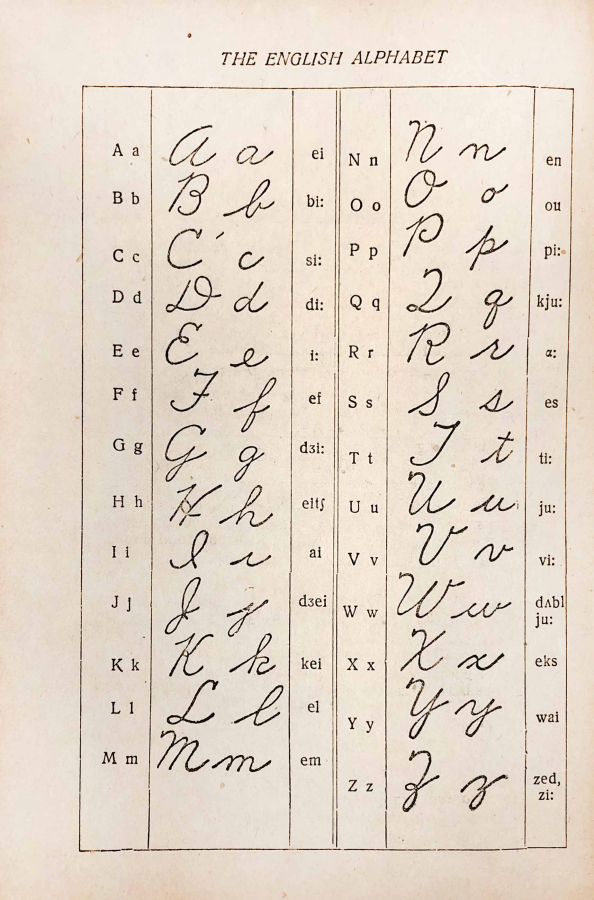 THE ENGLISH ALPHABET
A a A a ei
B b B b bi:
C c C c si:
D d D d di:
E e E e i:
F f F f ef
G g G g dʒi:
H h H h eitʃ
I i I i ai
J j J j dʒei
K k K k kei
L l L l el
M m M m em
N n N n en
O o O o ou
P p P p pi:
Q q Q q kju:
R r R r ɑ:
S s S s es
T t T t ti:
U u U u ju:
V v V v vi:
W w W w dʌbl
ju:
X x X x eks
Y y Y y wai
Z z Z z zed,
zi: